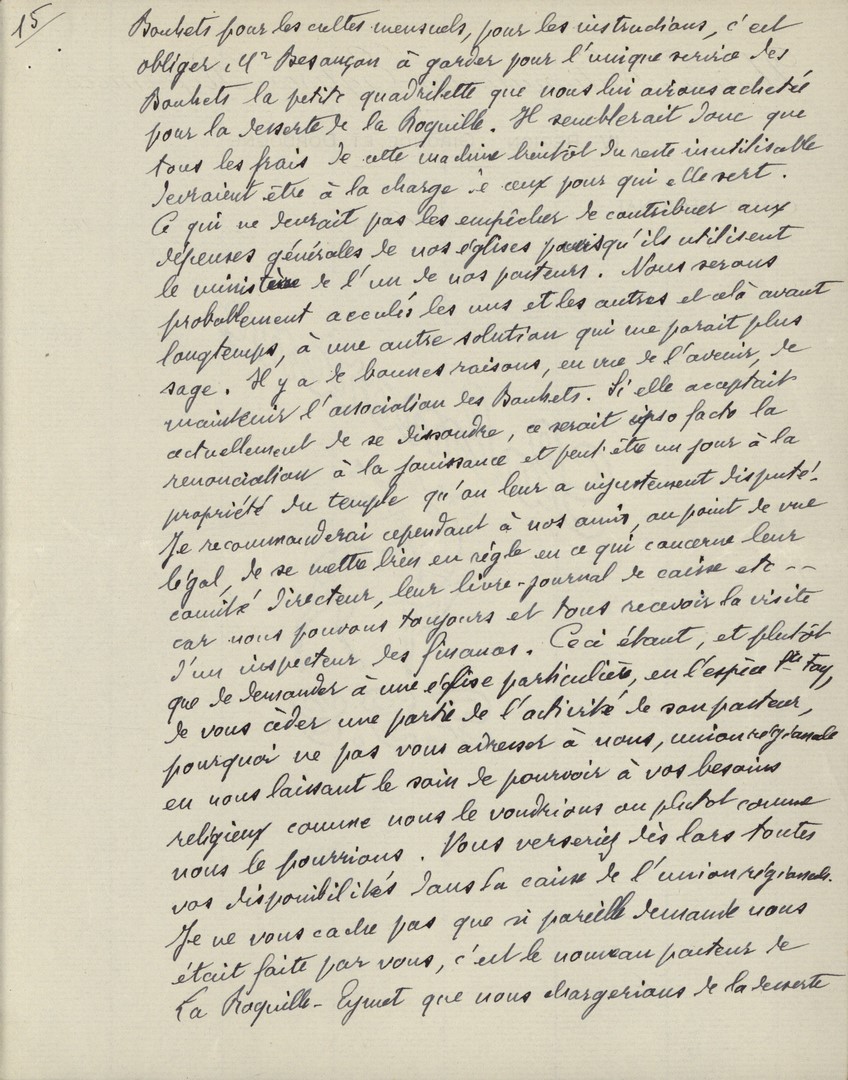 15
Bouhets pour les cultes mensuels, pour les instructions, c'est
obliger Mr Besançon à garder pour l'unique service des
Bouhets la petite quadrilette que nous lui avions achetée
pour la desserte de la Roquille. Il semblerait donc que
tous les frais de cette machine bientôt du reste inutilisable
devraient être à la charge de ceux pour qui elle sert.
Ce qui ne devrait pas les empêcher de contribuer aux
dépenses générales de nos églises puisqu'ils utilisent
le ministère de l'un de nos pasteurs. Nous serons
probablement acculés les uns et les autres et celà avant
longtemps, à une autre solution qui me parait plus
sage. Il y a de bonnes raisons, en vue de l'avenir, de
maintenir l'association des Bouhets. Si elle acceptait
actuellement de se dissoudre, ce serait ipso facto la
renonciation à la jouissance et peut être un jour à la
propriété du temple qu'on leur a injustement disputé!
Je recommanderai cependant à nos amis, au point de vue
légal, de se mettre bien en règle en ce qui concerne leur
comité directeur, leur livre-journal de caisse etc --
car nous pouvons toujours et tous recevoir la visite
d'un inspecteur des finances. Ceci étant, et plutôt
que de demander à une église particulière, en l'espèce Ste Foy,
de vous céder une partie de l'activité de son pasteur,
pourquoi ne pas vous adresser à nous, union régionale
en nous laissant le soin de pourvoir à vos besoins
religieux comme nous le voudrions ou plutot comme
nous le pourrions. Vous verseriez dès lors toutes
vos disponibilités dans la caisse de l'union régionale.
Je ne vous cache pas que si pareille demande nous
était faite par vous, c'est le nouveau pasteur de
La Roquille-Eymet que nous chargerions de la desserte